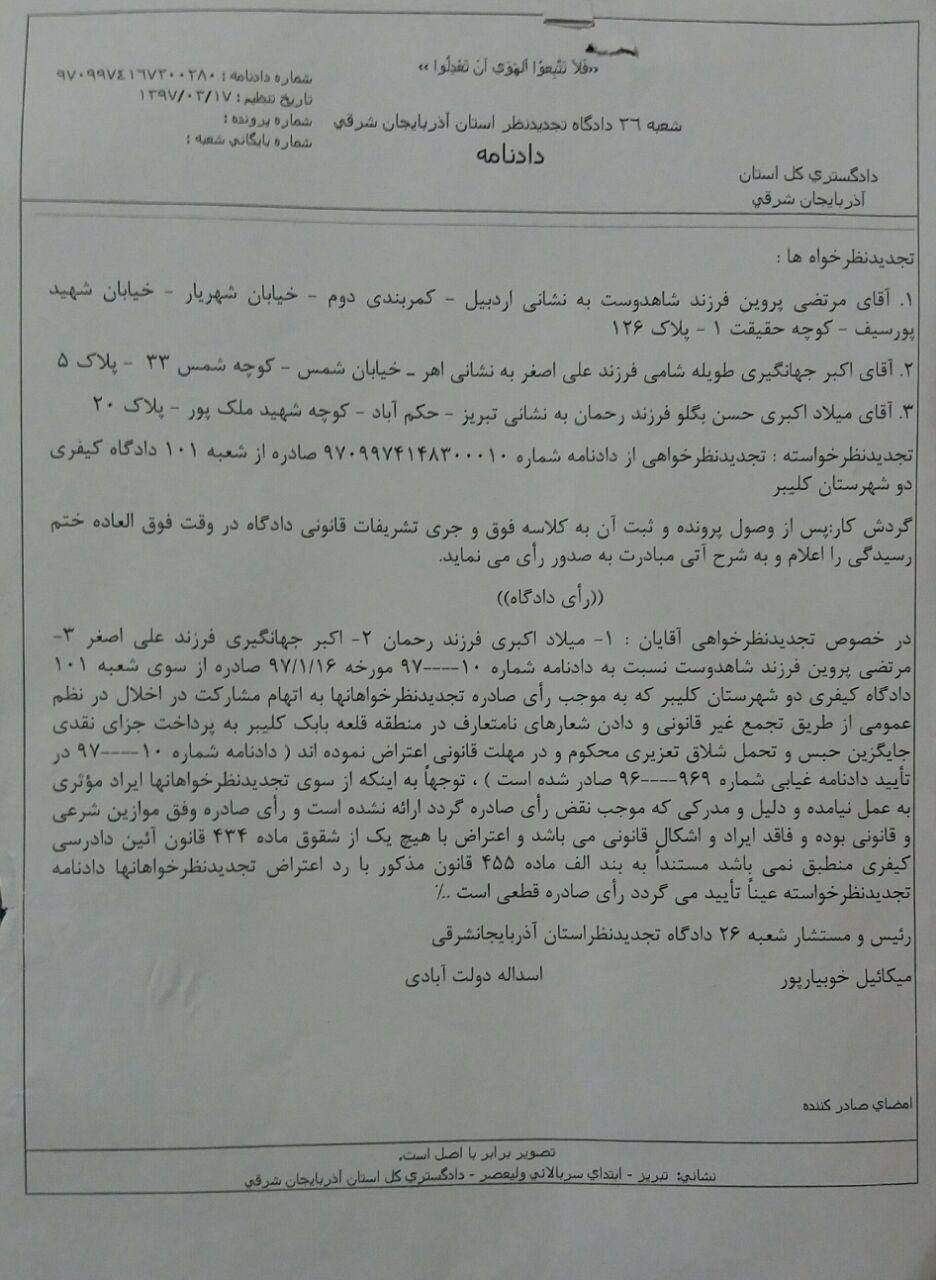 «فَلاَ تَتَّبِعُوا الْهَوَى أَنْ تَعْدِلُوا»
شماره دادنامه : ۹۷۰۹۹۷٤۱٦۷۳۰۰۲۸۰
تاریخ تنظیم : ۱۳۹۷/۰۳/۱۷
شماره پرونده :
شماره بایگاني شعبه :
شعبه ۲٦ دادگاه تجدیدنظر استان آذربایجان شرقي
دادنامه
دادگستري کل استان
آذربایجان شرقي
تجدیدنظرخواه ها :
۱. آقای مرتضی پروین فرزند شاهدوست به نشانی اردبیل - کمربندی دوم - خیابان شهریار - خیابان شهید
پورسیف - کوچه حقیقت ۱ - پلاک ۱۲۶
۲. آقای اکبر جهانگیری طویله شامی فرزند علی اصغر به نشانی اهر ـ خیابان شمس - کوچه شمس ۳۳ - پلاک ۵
۳. آقای میلاد اکبری حسن بگلو فرزند رحمان به نشانی تبریز - حکم آباد - کوچه شهید ملک پور - پلاک ۲۰
تجدیدنظرخواسته : تجدیدنظرخواهی از دادنامه شماره ۹۷۰۹۹۷۴۱۴۸۳۰۰۰۱۰ صادره از شعبه ۱۰۱ دادگاه کیفری
دو شهرستان کلیبر
گردش کار:پس از وصول پرونده و ثبت آن به کلاسه فوق و جری تشریفات قانونی دادگاه در وقت فوق العاده ختم
رسیدگی را اعلام و به شرح آتی مبادرت به صدور رأی می نماید.
((رأی دادگاه))
در خصوص تجدیدنظرخواهی آقایان : ۱- میلاد اکبری فرزند رحمان ۲- اکبر جهانگیری فرزند علی اصغر ۳-
مرتضی پروین فرزند شاهدوست نسبت به دادنامه شماره ۱۰----۹۷ مورخه ۹۷/۱/۱۶ صادره از سوی شعبه ۱۰۱
دادگاه کیفری دو شهرستان کلیبر که به موجب رأی صادره تجدیدنظرخواهانها به اتهام مشارکت در اخلال در نظم
عمومی از طریق تجمع غیر قانونی و دادن شعارهای نامتعارف در منطقه قلعه بابک کلیبر به پرداخت جزای نقدی
جایگزین حبس و تحمل شلاق تعزیری محکوم و در مهلت قانونی اعتراض نموده اند ( دادنامه شماره ۱۰----۹۷ در
تأیید دادنامه غیابی شماره ۹۶۹----۹۶ صادر شده است ) ، توجهاً به اینکه از سوی تجدیدنظرخواهانها ایراد مؤثری
به عمل نیامده و دلیل و مدرکی که موجب نقض رأی صادره گردد ارائه نشده است و رأی صادره وفق موازین شرعی
و قانونی بوده و فاقد ایراد و اشکال قانونی می باشد و اعتراض با هیچ یک از شقوق ماده ۴۳۴ قانون آئین دادرسی
کیفری منطبق نمی باشد مستنداً به بند الف ماده ۴۵۵ قانون مذکور با رد اعتراض تجدیدنظرخواهانها دادنامه
تجدیدنظرخواسته عیناً تأیید می گردد رأی صادره قطعی است ..٪
رئیس و مستشار شعبه ۲۶ دادگاه تجدیدنظراستان آذربایجانشرقی
میکائیل خوبیارپور اسداله دولت آبادی
امضاي صادر کننده
تصویر برابر با اصل است.
نشاني: تبریز - ابتداي سربالائي ولیعصر - دادگستري کل استان آذربایجان شرقي